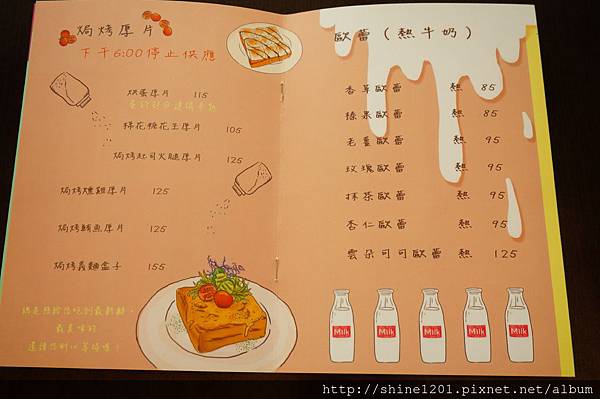 焗烤厚片
下午6:00停止供應
烘蛋厚片 115
棉花糖花生厚片 105
焗烤起司火腿厚片 125
焗烤燻雞厚片 125
焗烤鮪魚厚片 125
焗烤義麵盒子 155
總是想給您吃到最新鮮、
最美味的
還請您耐心等候唷。
歐蕾(熱牛奶)
香草歐蕾 熱 85
榛果歐蕾 熱 85
老薑歐蕾 熱 95
玫瑰歐蕾 熱 95
抹茶歐蕾 熱 95
杏仁歐蕾 熱 95
雲朵可可歐蕾 熱 125
Milk
Milk
Milk
Milk
Milk
http://shine1201.pixnet.net/album